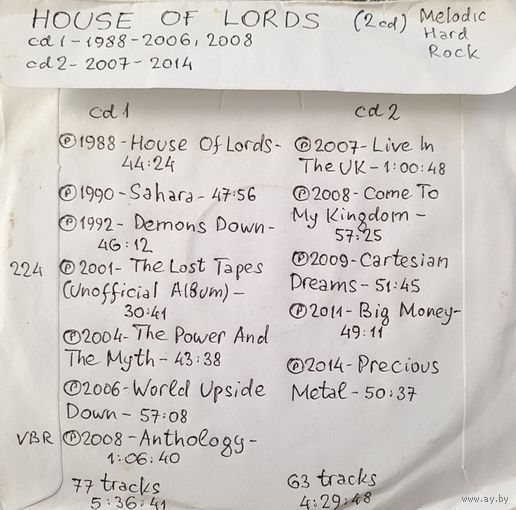 HOUSE OF LORDS (2cd) Melodic
Hard
Rock
cd1-1988-2006, 2008
cd2-2007-2014
cd1
℗1988-House Of Lords-
44:24
℗1990-Sahara-47:56
℗1992-Demons Down-
46:12
224 ℗2001-The Lost Tapes
(Unofficial Album)-
30:41
℗2004-The Power And
The Myth-43:38
℗2006-World Upside
Down-57:08
VBR ℗2008-Anthology-
1:06:40
77 tracks
5:36:41
cd2
℗2007-Live In
The UK-1:00:48
℗2008-Come To
My Kingdom-
57:25
℗2009-Cartesian
Dreams-51:45
℗2011-Big Money-
49:11
℗2014-Precious
Metal-50:37
63 tracks
4:29:48
www.ay.by